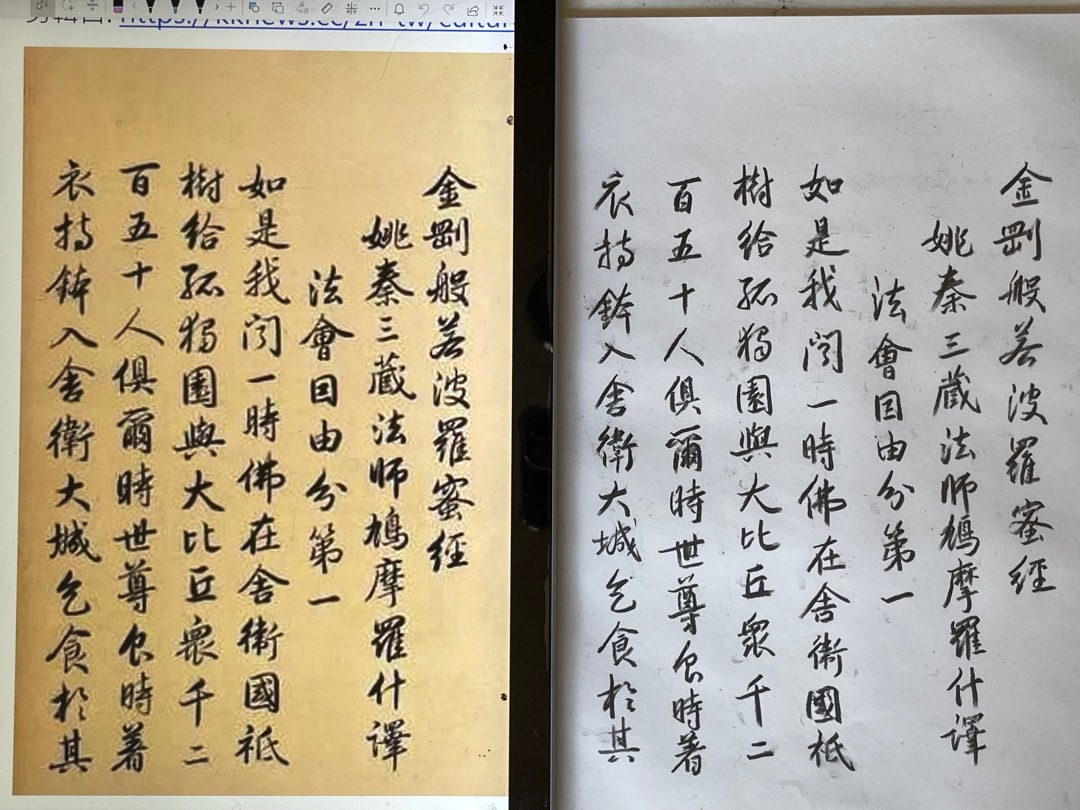 https://kknews.cc/zh-tw/cultur
金剛般若波羅蜜經
姚秦三藏法師鳩摩羅什譯
法會因由分第一
如是我聞一時佛在舍衛國祇
樹給孤獨園與大比丘眾千二
百五十人俱爾時世尊食時著
衣持鉢入舍衛大城乞食於其
金剛般若波羅蜜經
姚秦三藏法師鳩摩羅什譯
法會因由分第一
如是我聞一時佛在舍衛國祇
樹給孤獨園與大比丘眾千二
百五十人俱爾時世尊食時著
衣持鉢入舍衛大城乞食於其